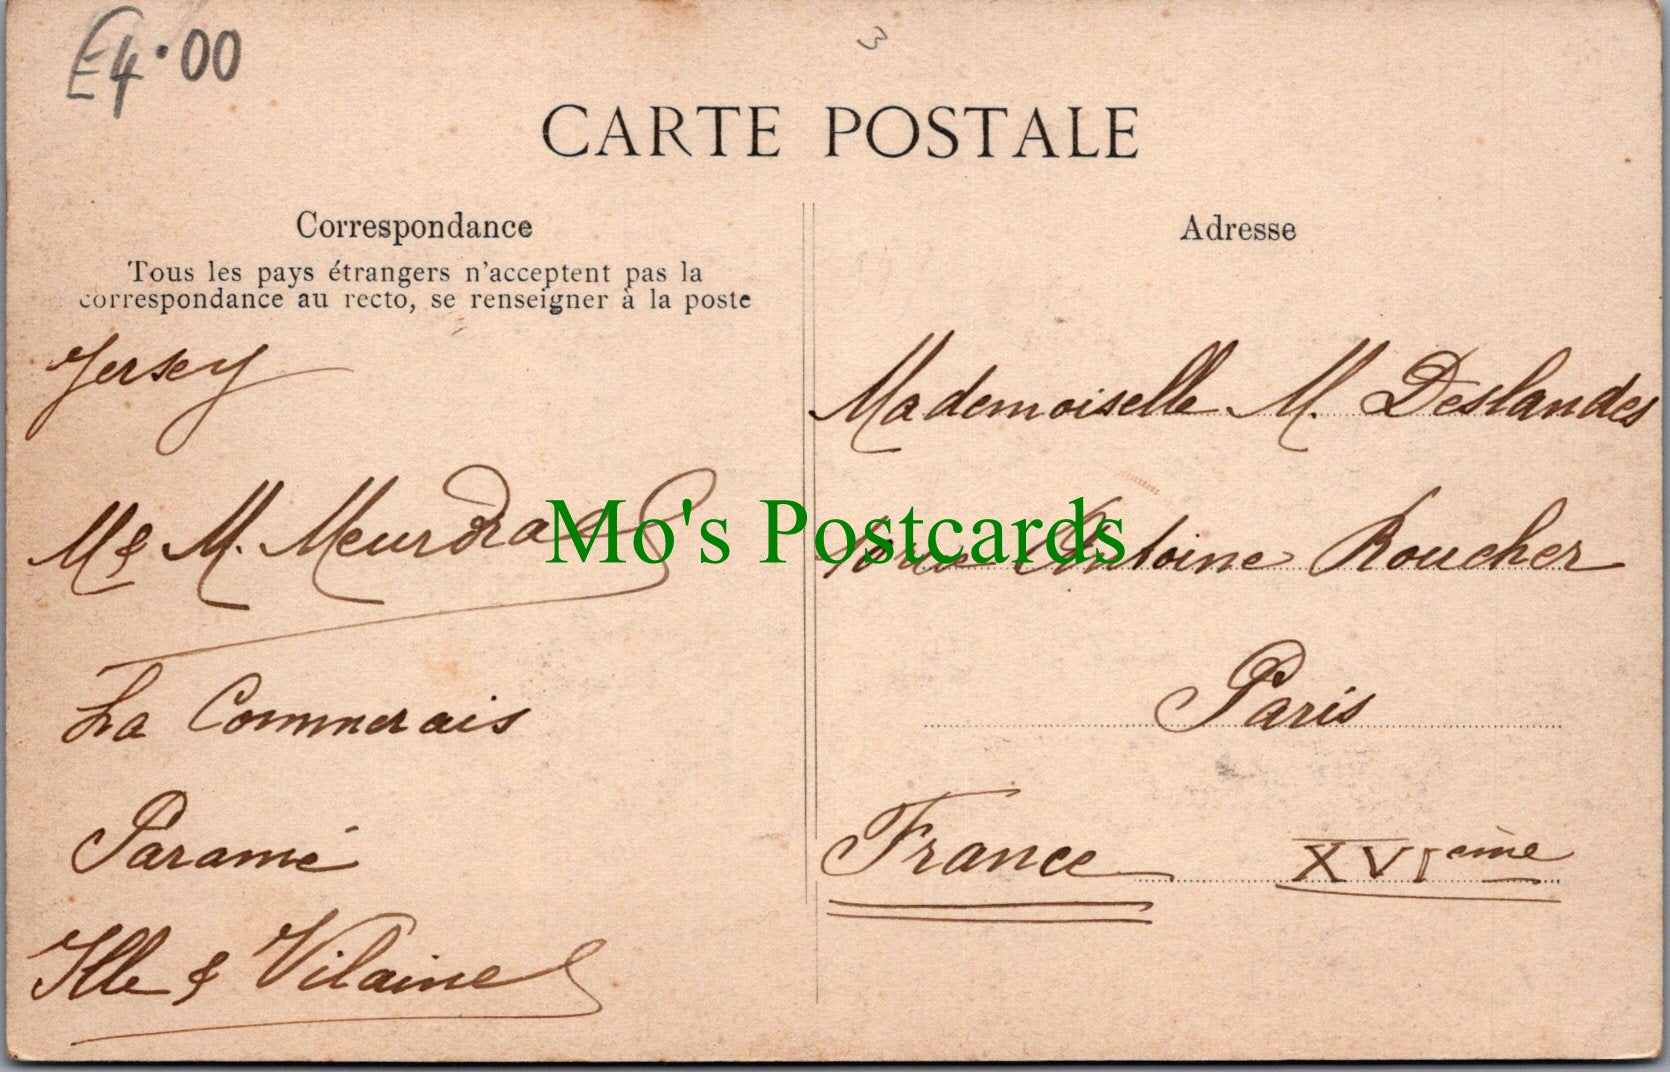 £4.00
3
CARTE POSTALE
Correspondance
Tous les pays étrangers n'acceptent pas la
correspondance au recto, se renseigner à la poste
Jersey
M & M. Meurdrac
La Commerais
Paramé
Ille & Vilaine
Adresse
Mademoiselle M. Deslandes
rue Antoine Roucher
Paris
France XVIème
Mo's Postcards